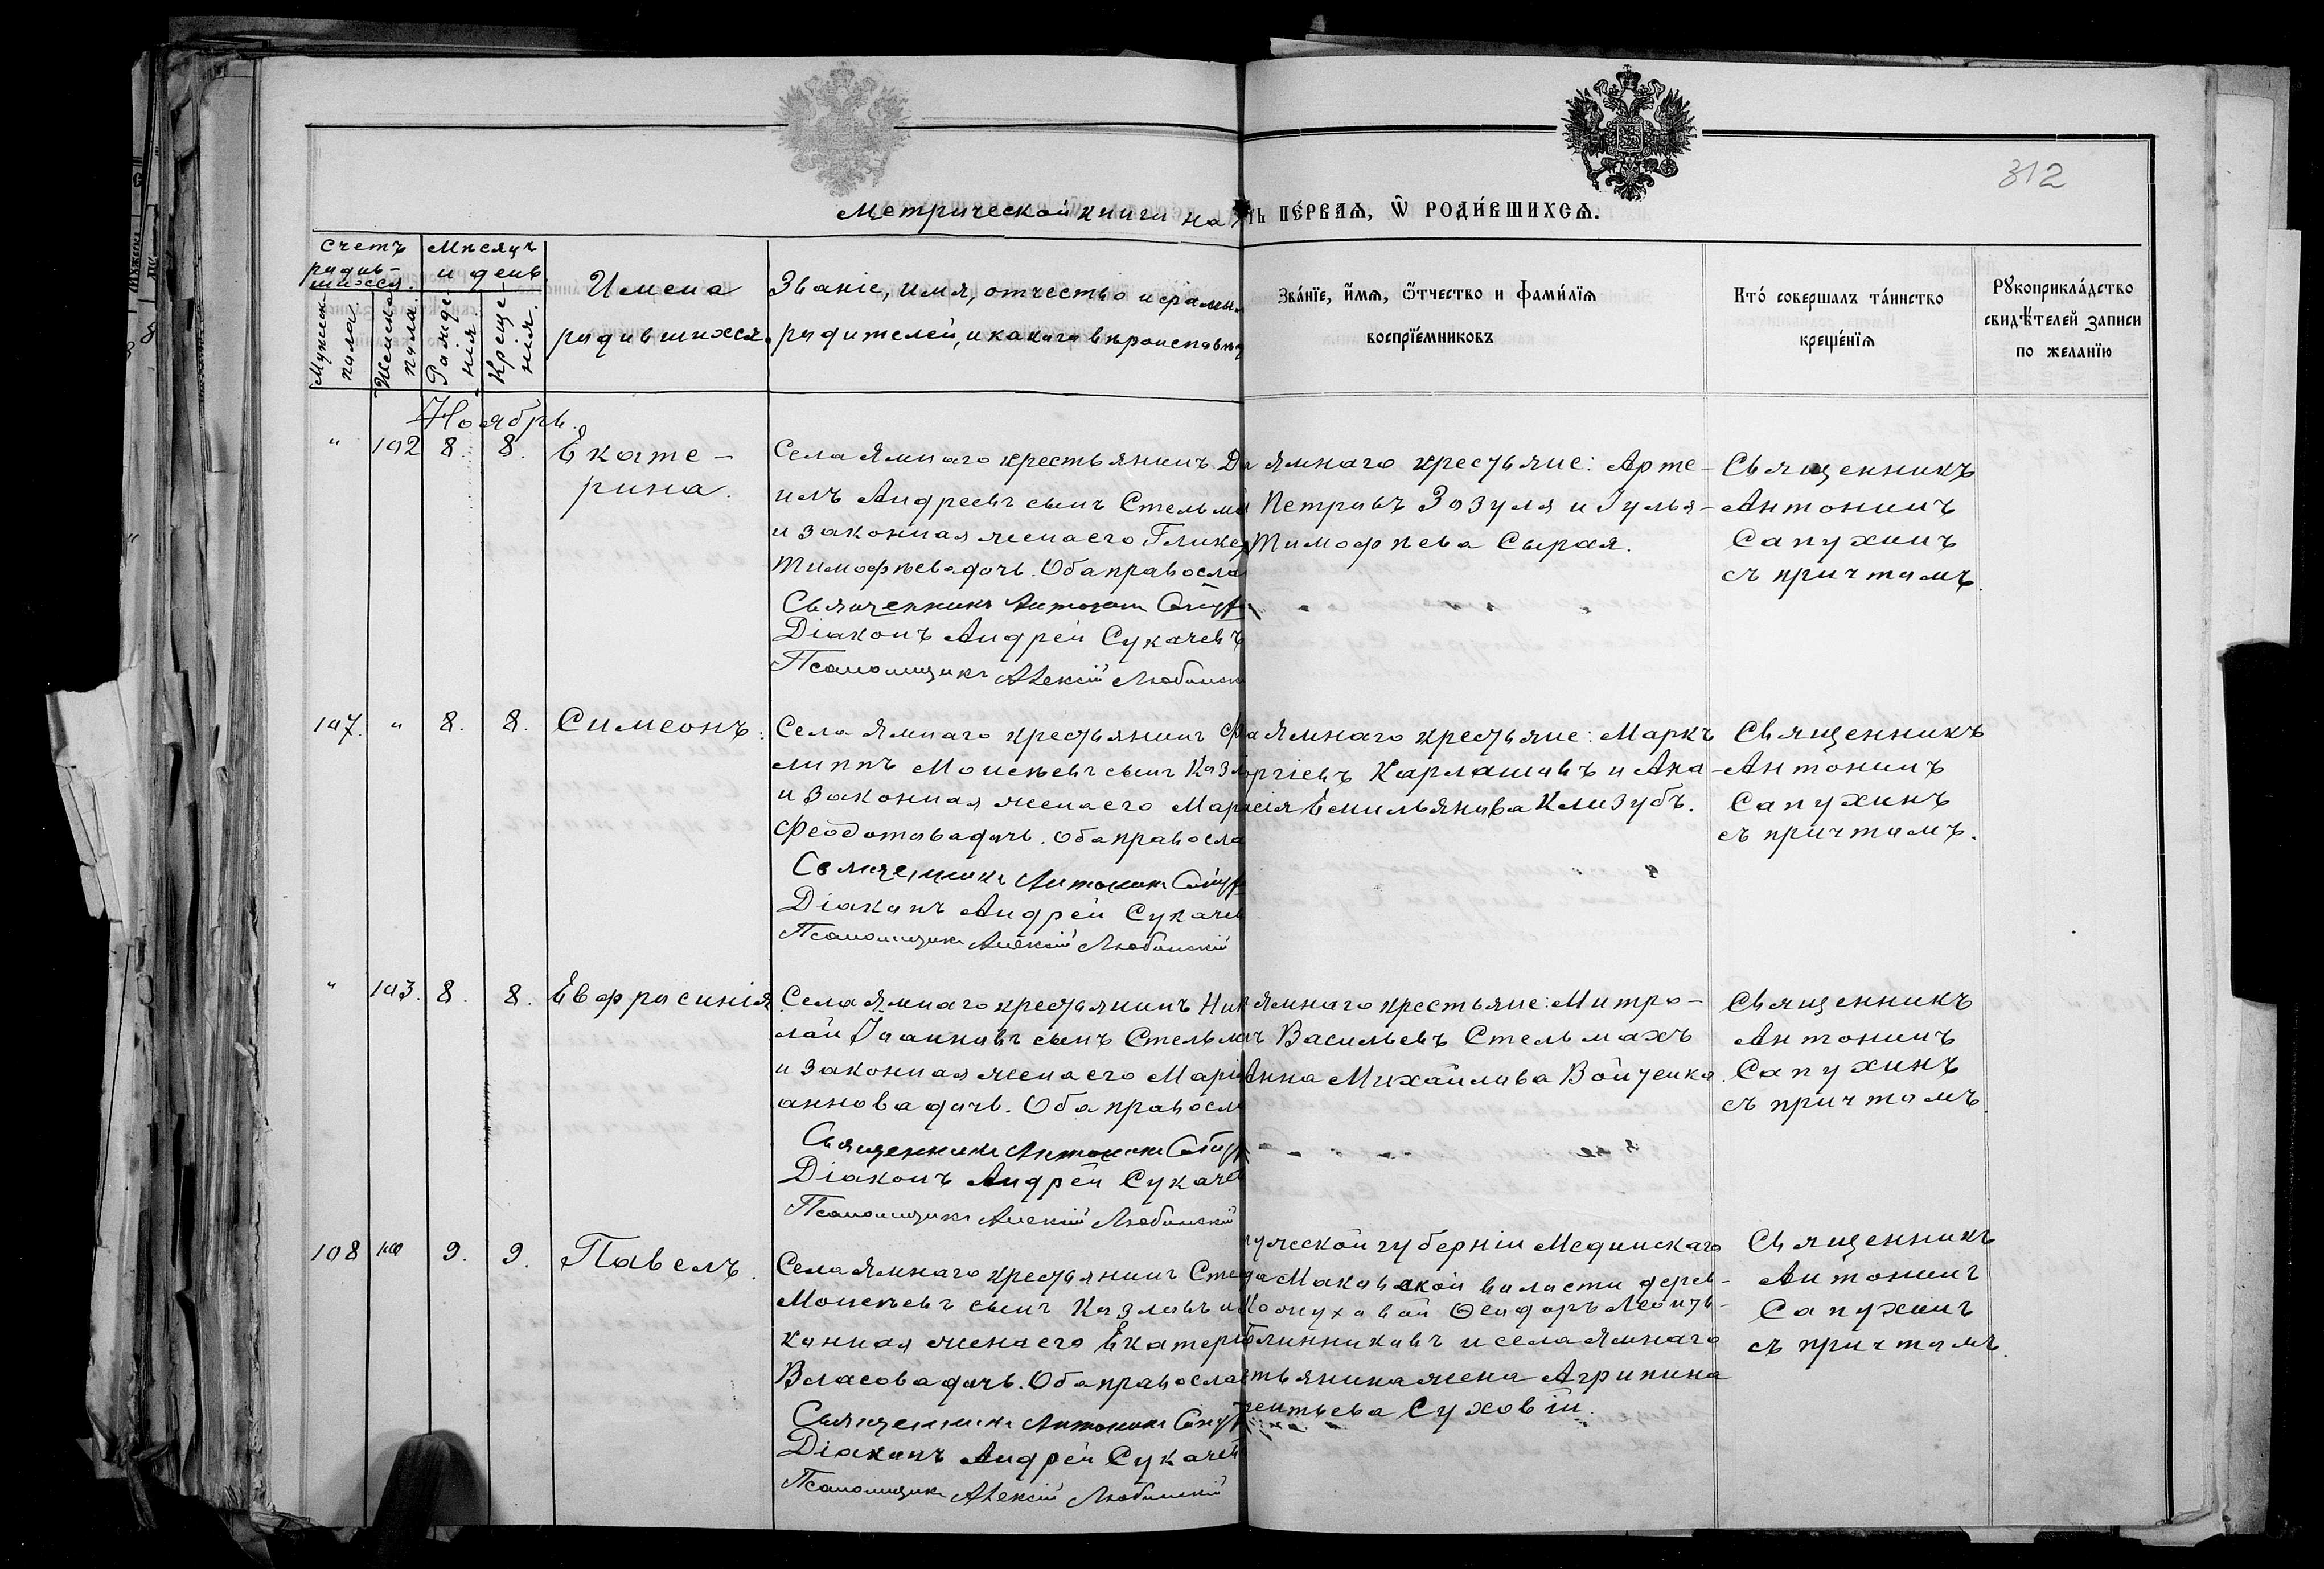 312
Метрической книги на
ть пе́рвая, Ѡ роди́вшихся.
Счетъ родив-шихся.
Мужеска пола.
Женска пола.
Мѣсяцъ и день.
Рожде-нія.
Креще-нія.
Имена
родившихся.
Званіе, имя, отчество и фамил
родителей, и какого вѣроисповѣд
Зва́нїе, и҆́мя, ѻ҆́тчество и фами́лїя
воспрїе́мниковъ
Кто̀ соверша́лъ та́инство
креще́нїя
Рꙋкоприкла́дство
свидѣ́телей записи
по жела́нїю
Ноябрь.
" 102 8. 8. Екате-
рина.
Села Ямнаго крестьянинъ Да
илъ Андреевъ сынъ Стельма
и законная жена его Глике
Тимофѣева дочь. Оба правосла
Священникъ Антонин Сапух
Діаконъ Андрей Сукачевъ
Псаломщикъ Алексій Любинск
Ямнаго крестьяне: Арте-
Петровъ Зозуля и Іулья-
Тимофѣева Сырая.
Священникъ
Антонинъ
Сапухинъ
съ причтомъ.
107. " 8. 8. Симеонъ.
Села Ямнаго крестьянинъ Фи
липпъ Моисѣевъ сынъ Козл
и законная жена его Мар
Феодотова дочь. Оба правосла
Священникъ Антонинъ Сапух
Діаконъ Андрей Сукачев
Псаломщикъ Алексій Любинскій
а Ямнаго крестьяне: Маркъ
оргіевъ Карлашовъ и Ана-
сія Емильянова Клизубъ.
Священникъ
Антонинъ
Сапухинъ
съ причтомъ.
" 103. 8. 8. Евфросинія
Села Ямнаго крестьянинъ Ник
лай Іоанновъ сынъ Стельма
и законная жена его Марі
аннова дочь. Оба правосл
Священникъ Антонинъ Сапух
Діаконъ Андрей Сукаче
Псаломщикъ Алексій Любинскій
Ямнаго крестьяне: Митро-
ъ Васильевъ Стельмахъ
Анна Михайлова Войтенко.
Священникъ
Антонинъ
Сапухинъ
съ причтомъ.
108 9. 9. Павелъ.
Села Ямнаго крестьянинъ Сте
Моисѣевъ сынъ Козловъ и
конная жена его Екатери
Власова дочь. Оба правосла
Священникъ Антонинъ Сапух
Діаконъ Андрей Сукачев
Псаломщикъ Алексій Любинскій
ужской губерніи Медынскаго
да Маковской волости дерев-
Ѳеодоръ Леонть-
Блинниковъ и села Ямнаго
стьянина жена Агрипина
ентьева Суховій.
Священникъ
Антонинъ
Сапухинъ
съ причтомъ.